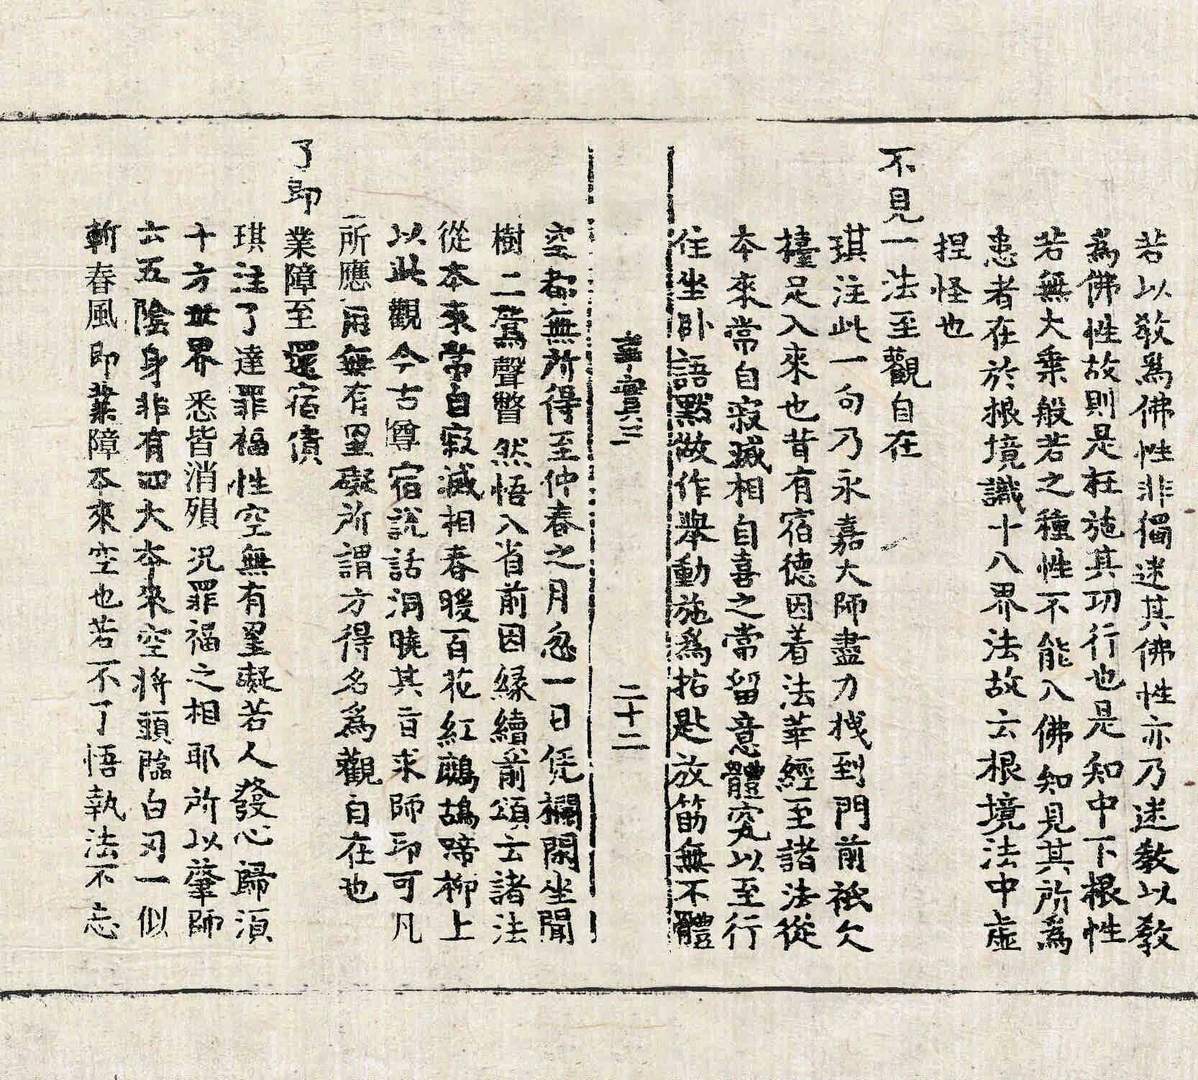 若以教爲佛性非獨迷其佛性亦乃迷教以教
爲佛性故則是枉施其功行也是知中下根性
若無大乗般若之種性不能入佛知見其所爲
患者在於根境識十八界法故云根境法中虛
捏怪也
不見一法至觀自在
琪注此一句乃永嘉大師盡力栈到門前祇欠
檯足入來也昔有宿德因着法華經至諸法從
夲來常自寂滅相自喜之常留意體究以至行
住坐卧語黙做作舉動施爲拈匙放筯無不體
二十二
究都無所得至仲春之月忽一日凭欄閑坐聞
樹二鶯聲瞥然悟入省前因縁續前頌云諸法
從夲來常自寂滅相春暖百花紅鷓鴣啼柳上
以此觀今古尊宿說話洞曉其旨求師印可凡
所應用無有罣礙所謂方得名爲觀自在也
了即業障至還宿債
琪注了達罪福性空無有罣礙若人發心歸湏
十方世界悉皆消殞况罪福之相耶所以肇師
云五陰身非有四大夲來空將頭臨白刃一似
斬春風即業障夲來空也若不了悟執法不忘